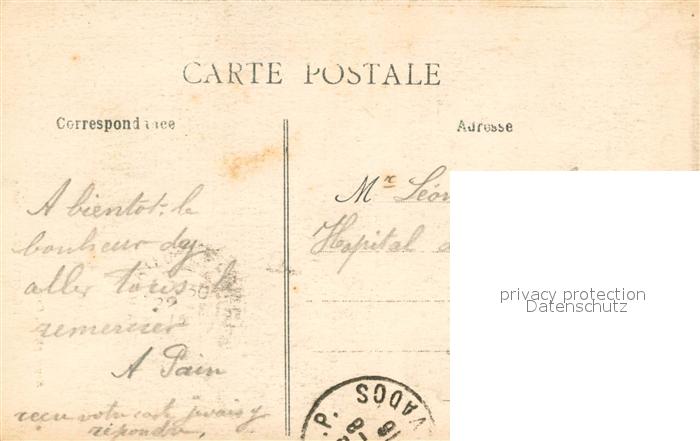 CARTE POSTALE
Correspondance
Adresse
A bientot. le
bonheur dy
aller tous le
remercier
A Pain
reçu votre carte, jvais y
répondre,
Mr Léon
Hopital
privacy protection
Datenschutz
VADOS